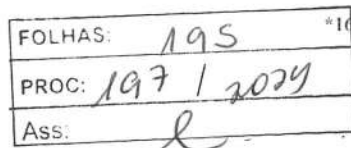 FOLHAS: 195
PROC: 197 / 2024
Ass: